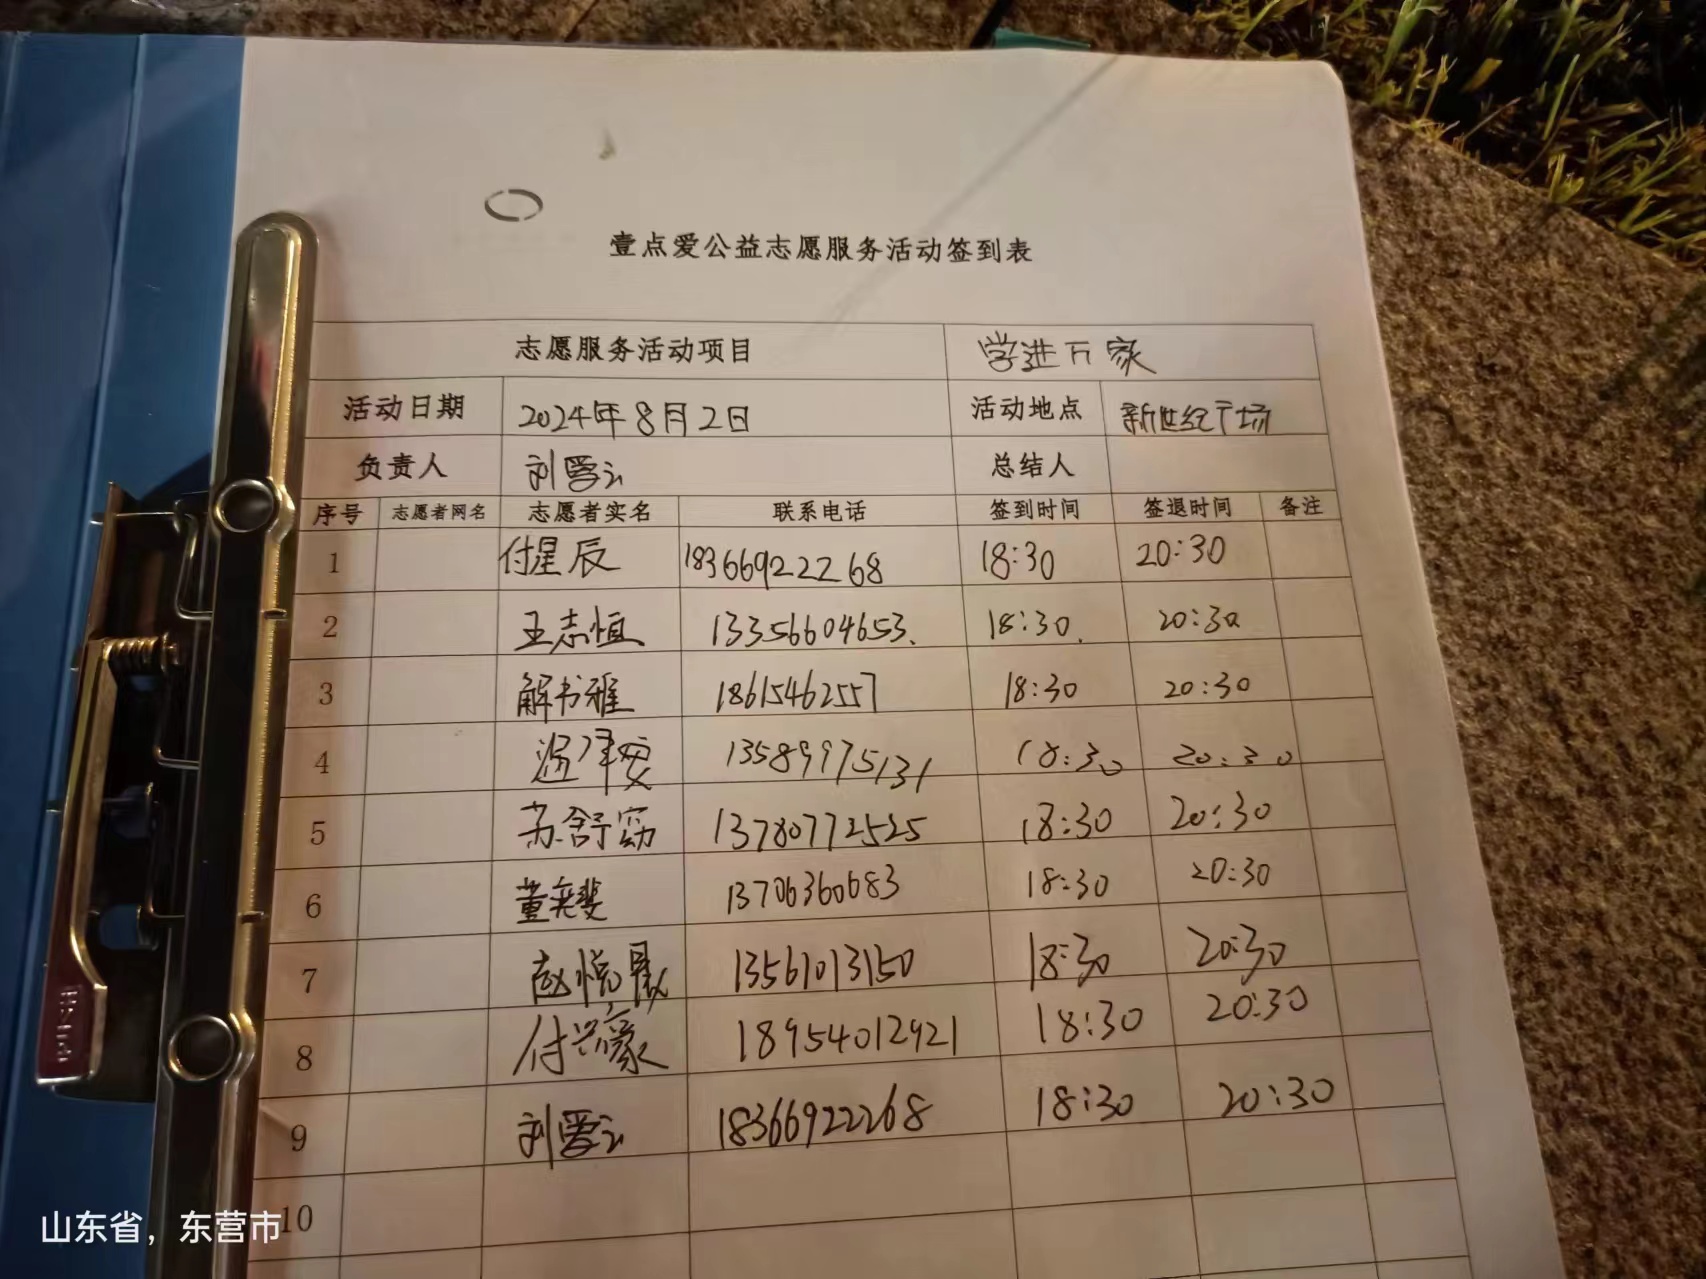 壹点爱公益志愿服务活动签到表
志愿服务活动项目 学进万家
活动日期 2024年8月2日 活动地点 新世纪广场
负责人 刘爱云 总结人
序号 志愿者网名 志愿者实名 联系电话 签到时间 签退时间 备注
1 付星辰 18366922268 18:30 20:30
2 王志恒 13356604653. 18:30. 20:30
3 解书雅 18615462557 18:30 20:30
4 13589975131 18:30 20:30
5 苏舒窈 13780772525 18:30 20:30
6 董奕斐 13706360683 18:30 20:30
7 赵悦晟 13561013150 18:30 20:30
8 付兴豪 18954012921 18:30 20:30
9 刘爱云 18366922268 18:30 20:30
10
山东省，东营市